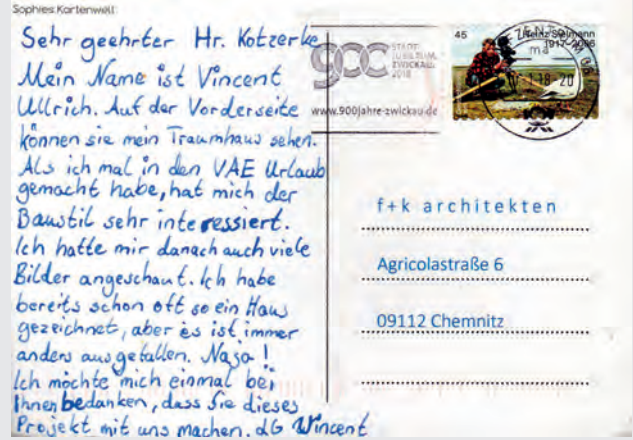 Sophies Kartenwelt
Sehr geehrter Hr. Kotzerke
Mein Name ist Vincent
Ullrich. Auf der Vorderseite
können sie mein Traumhaus sehen.
Als ich mal in den VAE Urlaub
gemacht habe, hat mich der
Baustil sehr interessiert.
Ich hatte mir danach auch viele
Bilder angeschaut. Ich habe
bereits schon oft so ein Haus
gezeichnet, aber es ist immer
anders ausgefallen. Naja!
Ich möchte mich einmal bei
Ihnen bedanken, dass Sie dieses
Projekt mit uns machen. LG Vincent
900
STADT
JUBILÄUM
ZWICKAU
2018
www.900jahre-zwickau.de
45
Heinz Sielmann
1917–2006
f+k architekten
Agricolastraße 6
09112 Chemnitz